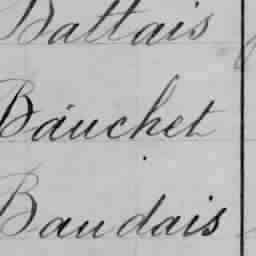 Battais
Bauchet
Baudais